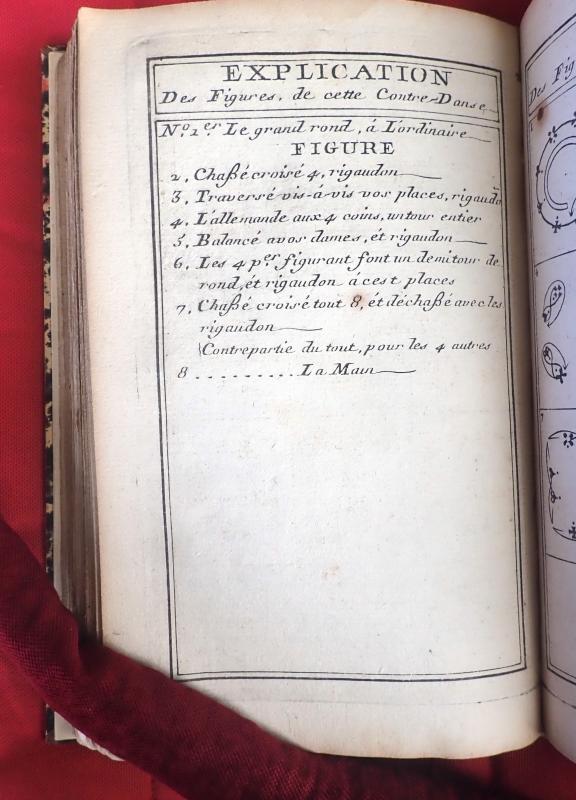 EXPLICATION
Des Figures, de cette Contre-Danse
N.º 1.er Le grand rond, á L'ordinaire
FIGURE
2, Chaßé croisé 4, rigaudon
3, Traversé vis-á-vis vos places, rigaudō
4, L'allemande aux 4 coins, un tour entier
5, Balancé a vos dames, ét rigaudon
6, Les 4 p.ers figurant font un demi tour de
rond, ét rigaudon á cest places
7, Chaßé croisé tout 8, ét déchaßé avec les
rigaudon
Contrepartie du tout, pour les 4 autres
8 .......... La Main
Des Fig